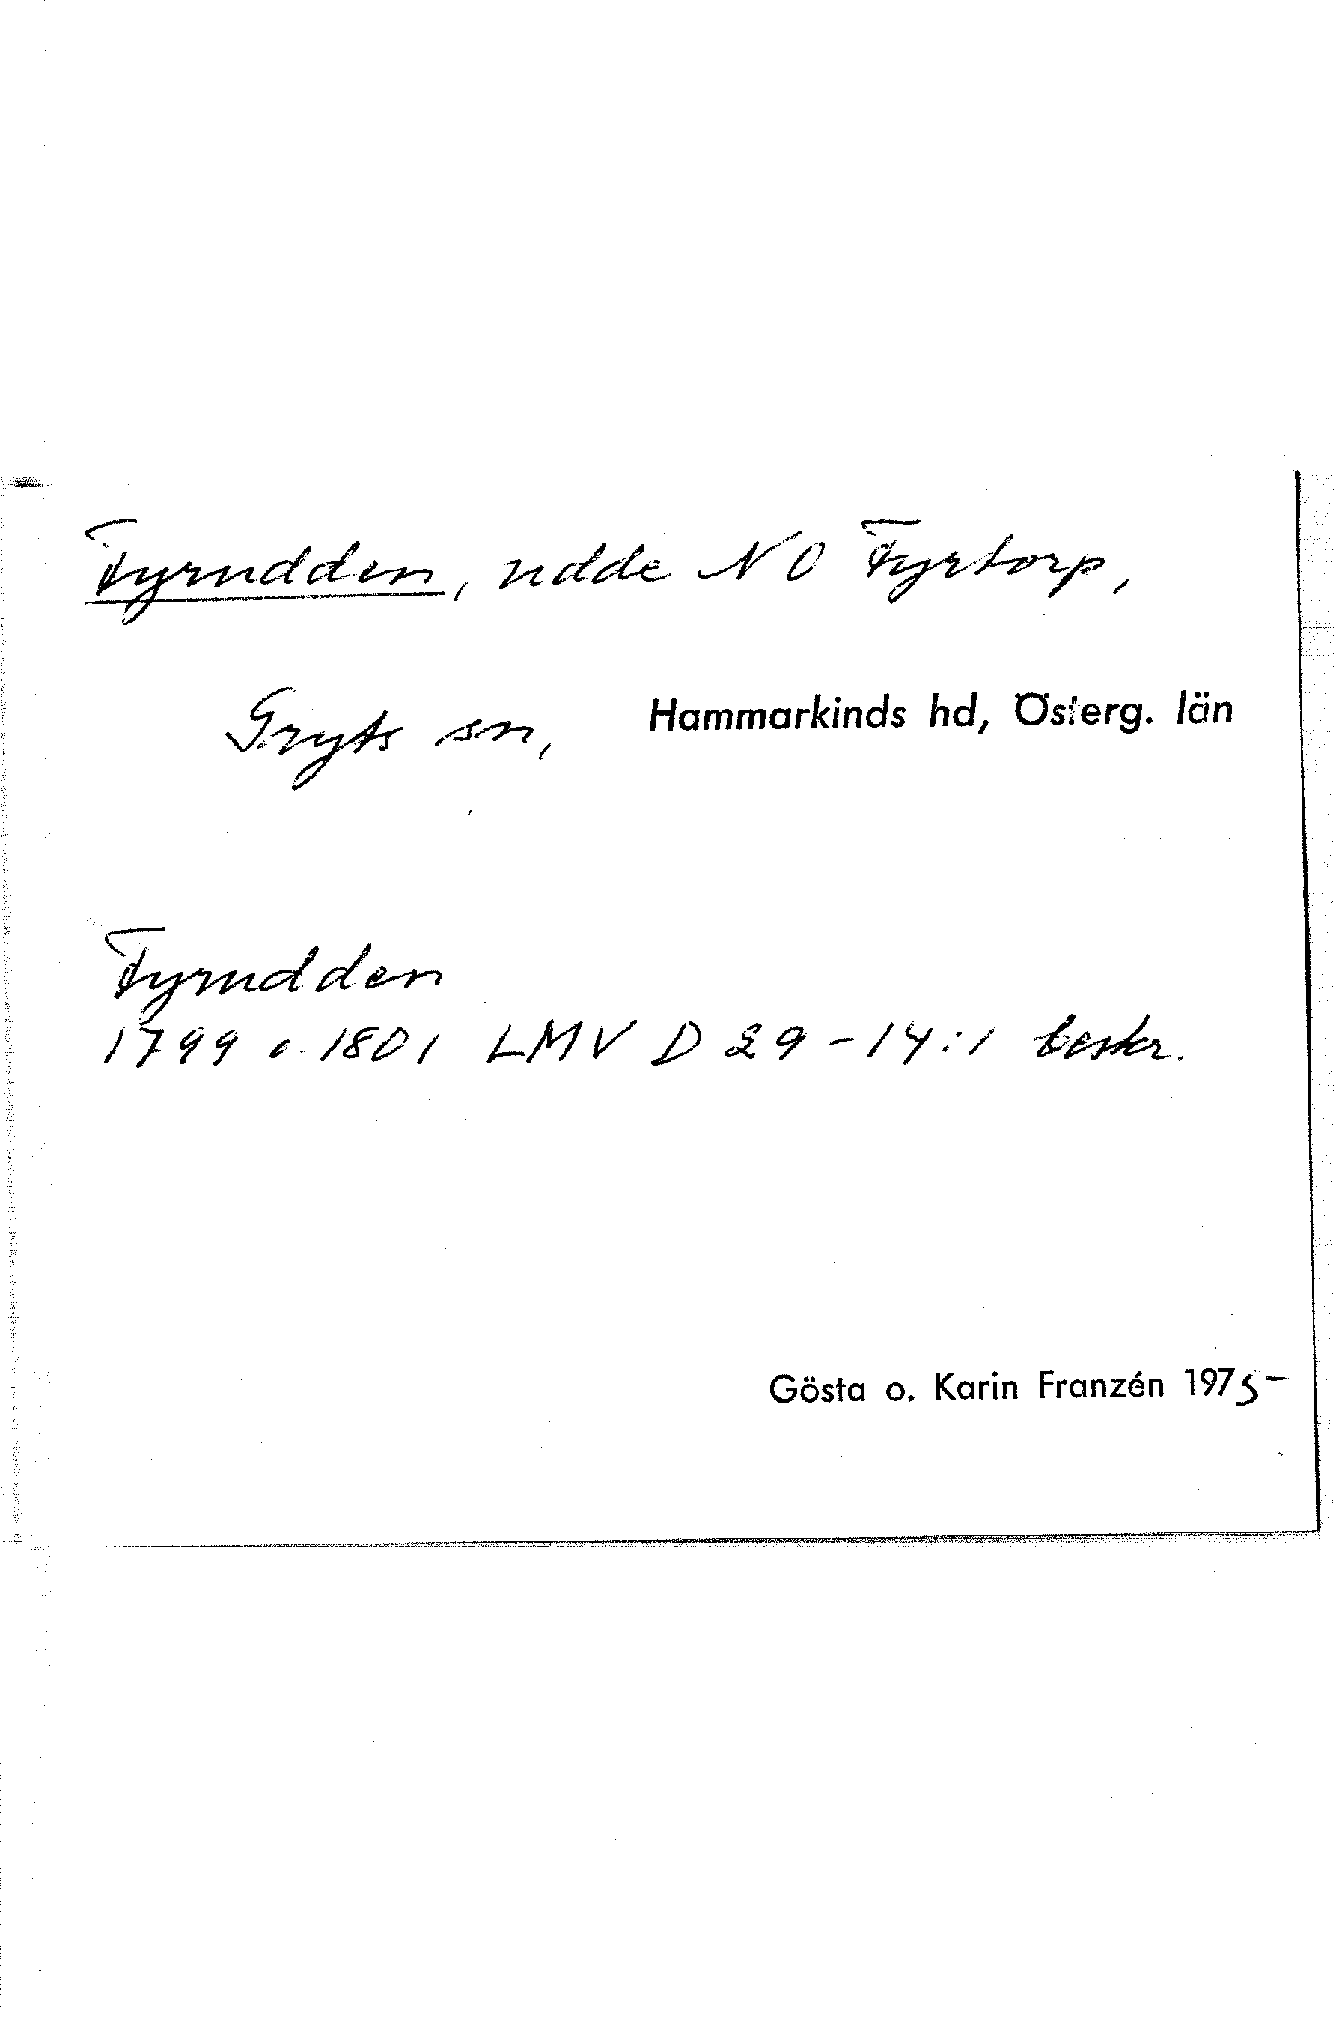 Fyrudden, udde NO Fyrtorp,
Gryts sn, Hammarkinds hd, Österg. län
Fyrudden
1799 o. 1801 LMV D 29-14:1 beskr.
Gösta o. Karin Franzén 1975